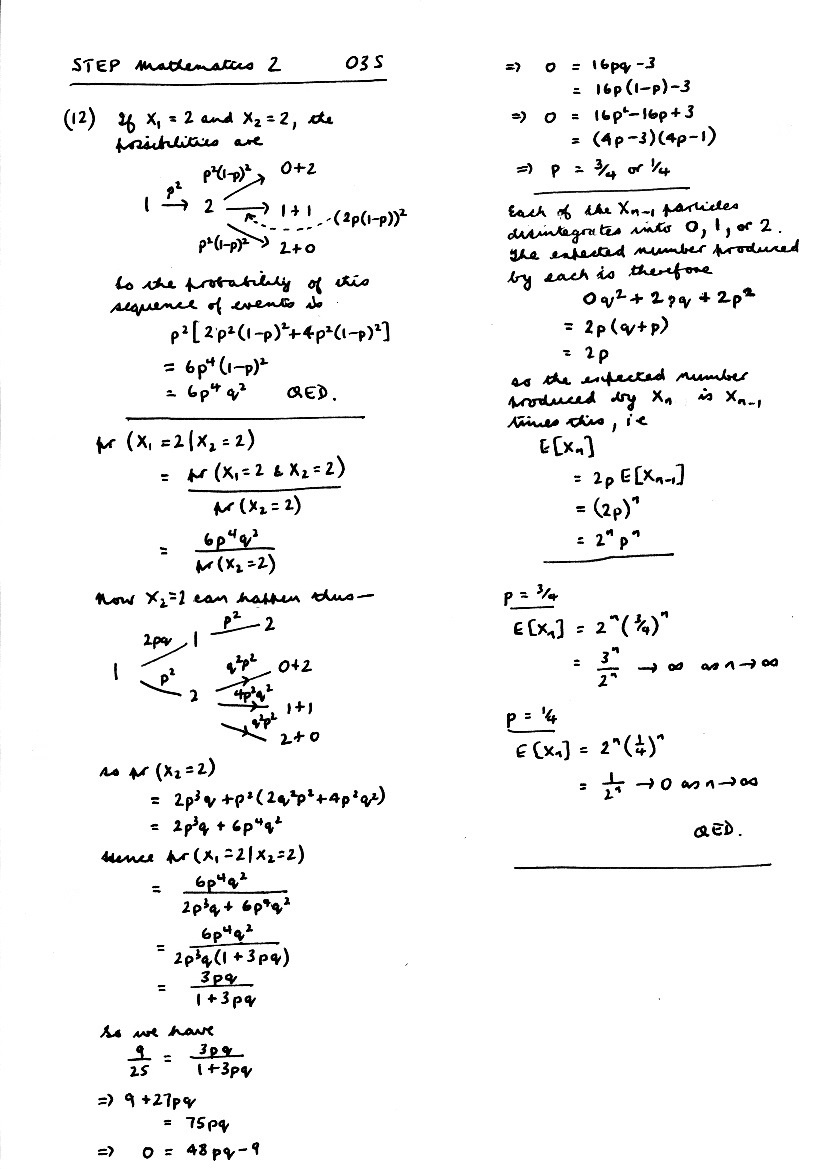 STEP Mathematics 2 03S
(12) If X₁ = 2 and X₂ = 2, the
possibilities are
p²(1-p)² 0+2
1 →p² 2 → 1+1 (2p(1-p))²
p²(1-p)² 2+0
So the probability of this
sequence of events is
p²[2p²(1-p)²+4p²(1-p)²]
= 6p⁴(1-p)²
= 6p⁴q² QED.
pr (X₁ = 2 | X₂ = 2)
= pr (X₁ = 2 & X₂ = 2) / pr (X₂ = 2)
= 6p⁴q² / pr (X₂ = 2)
Now X₂=2 can happen thus—
2pq 1 p² 2
1 p² 2 q²p² 0+2
4p²q² 1+1
q²p² 2+0
so pr (X₂ = 2)
= 2p³q + p²(2q²p² + 4p²q²)
= 2p³q + 6p⁴q²
Hence pr (X₁ = 2 | X₂ = 2)
= 6p⁴q² / 2p³q + 6p⁴q²
= 6p⁴q² / 2p³q(1 + 3pq)
= 3pq / 1 + 3pq
So we have
9/25 = 3pq / 1+3pq
=> 9 + 27pq
= 75pq
=> 0 = 48pq - 9
=> 0 = 16pq - 3
= 16p(1-p) - 3
=> 0 = 16p² - 16p + 3
= (4p-3)(4p-1)
=> p = 3/4 or 1/4
Each of the Xₙ₋₁ particles
disintegrates into 0, 1, or 2.
The expected number produced
by each is therefore
0q² + 2pq + 2p²
= 2p(q+p)
= 2p
so the expected number
produced by Xₙ is Xₙ₋₁
times this, i.e
E[Xₙ]
= 2p E[Xₙ₋₁]
= (2p)ⁿ
= 2ⁿpⁿ
p = 3/4
E[Xₙ] = 2ⁿ(3/4)ⁿ
= 3ⁿ/2ⁿ → ∞ as n → ∞
p = 1/4
E[Xₙ] = 2ⁿ(1/4)ⁿ
= 1/2ⁿ → 0 as n → ∞
QED.